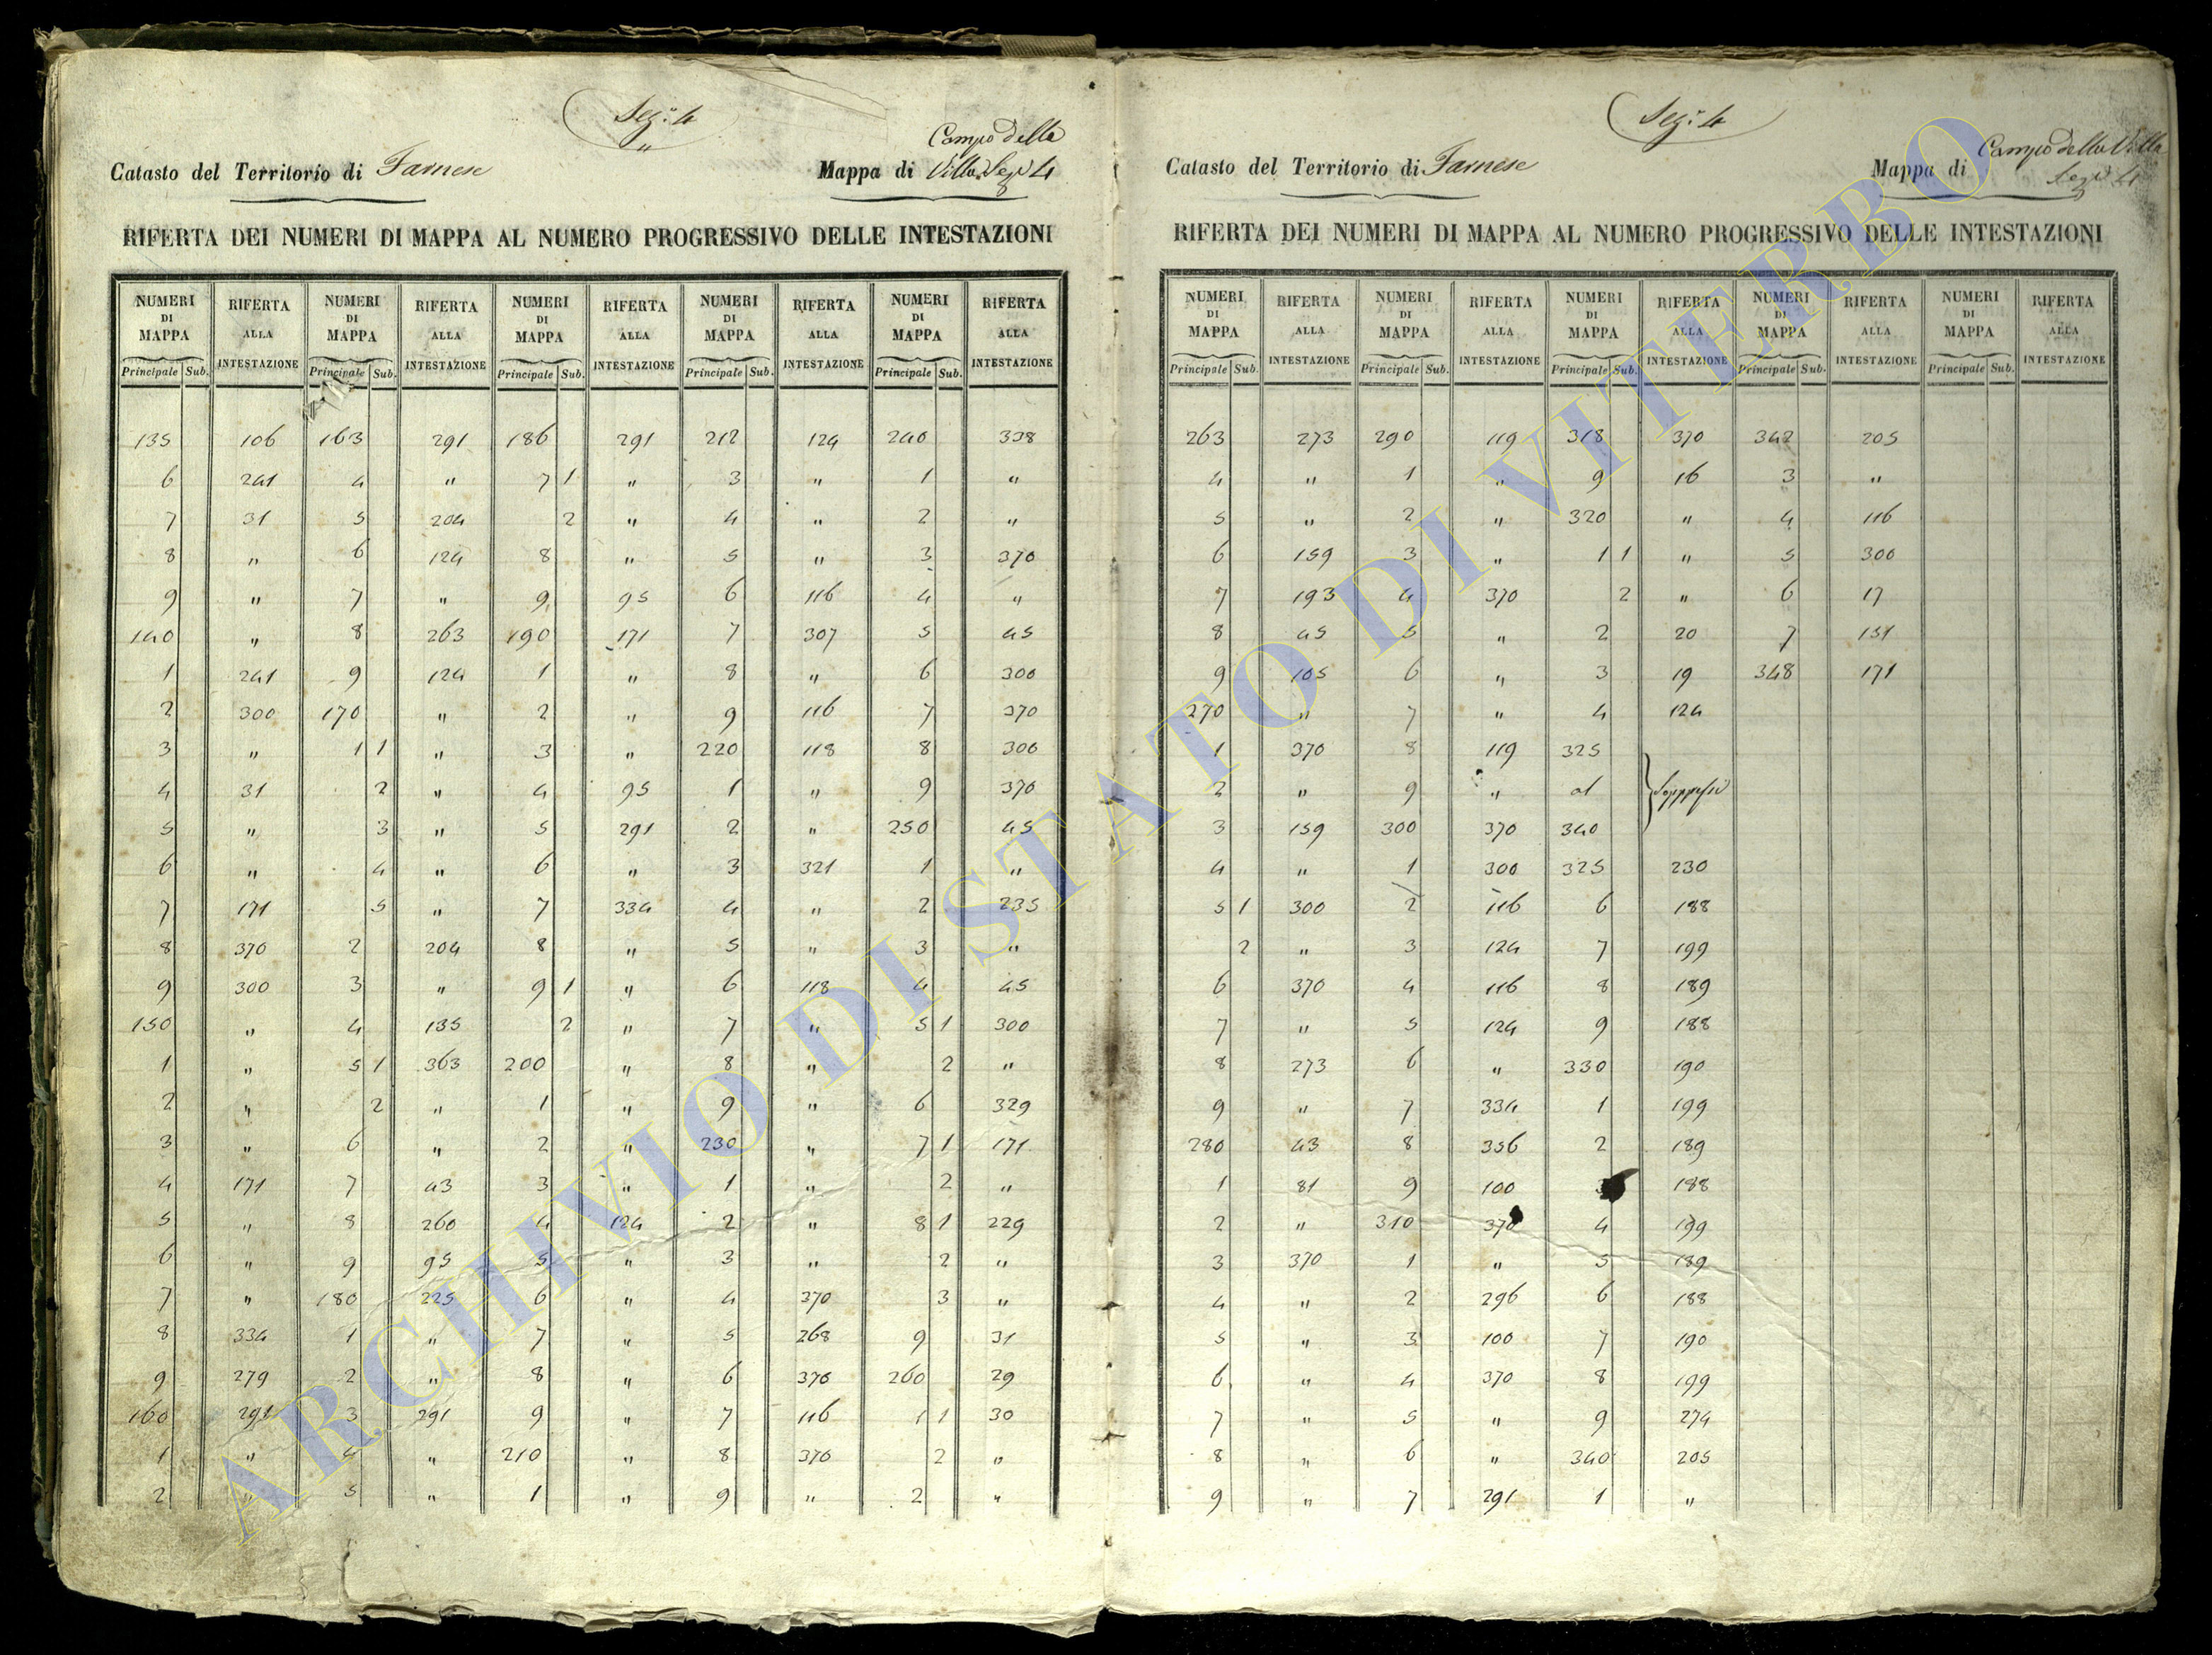 Seg.e 4
Catasto del Territorio di Farnese
Mappa di Campo della Villa Seg.e 4
RIFERTA DEI NUMERI DI MAPPA AL NUMERO PROGRESSIVO DELLE INTESTAZIONI
NUMERI DI MAPPA RIFERTA ALLA INTESTAZIONE NUMERI DI MAPPA RIFERTA ALLA INTESTAZIONE NUMERI DI MAPPA RIFERTA ALLA INTESTAZIONE NUMERI DI MAPPA RIFERTA ALLA INTESTAZIONE NUMERI DI MAPPA RIFERTA ALLA INTESTAZIONE
Principale Sub. Principale Sub. Principale Sub. Principale Sub. Principale Sub.
135 106 163 291 186 291 212 124 240 338
6 241 4 " 7 1 " 3 " 1 "
7 31 5 204 2 " 4 " 2 "
8 " 6 124 8 " 5 " 3 370
9 " 7 " 9 95 6 116 4 "
140 " 8 263 190 171 7 307 5 45
1 241 9 124 1 " 8 " 6 300
2 300 170 " 2 " 9 116 7 370
3 " 1 1 " 3 " 220 118 8 300
4 31 2 " 4 95 1 " 9 370
5 " 3 " 5 291 2 " 250 45
6 " 4 " 6 " 3 321 1 "
7 171 5 " 7 334 4 " 2 235
8 370 2 204 8 " 5 " 3 "
9 300 3 " 9 1 " 6 118 4 45
150 " 4 135 2 " 7 " 5 1 300
1 " 5 1 363 200 " 8 " 2 "
2 " 2 " 1 " 9 " 6 329
3 " 6 " 2 " 230 " 7 1 171
4 171 7 43 3 " 1 " 2 "
5 " 8 260 4 124 2 " 8 1 229
6 " 9 95 5 " 3 " 2 "
7 " 180 225 6 " 4 370 3 "
8 334 1 " 7 " 5 268 9 31
9 279 2 " 8 " 6 370 260 29
160 291 3 291 9 " 7 116 1 1 30
1 " 4 " 210 " 8 370 2 "
2 " 5 " 1 " 9 " 2 "
Seg.e 4
Catasto del Territorio di Farnese
Mappa di Campo della Villa
Seg.e 4
RIFERTA DEI NUMERI DI MAPPA AL NUMERO PROGRESSIVO DELLE INTESTAZIONI
NUMERI DI MAPPA RIFERTA ALLA INTESTAZIONE NUMERI DI MAPPA RIFERTA ALLA INTESTAZIONE NUMERI DI MAPPA RIFERTA ALLA INTESTAZIONE NUMERI DI MAPPA RIFERTA ALLA INTESTAZIONE NUMERI DI MAPPA RIFERTA ALLA INTESTAZIONE
Principale Sub. Principale Sub. Principale Sub. Principale Sub. Principale Sub.
263 273 290 119 318 370 342 205
4 " 1 " 9 16 3 "
5 " 2 " 320 " 4 116
6 159 3 " 1 1 " 5 300
7 193 4 370 2 " 6 17
8 45 5 " 2 20 7 151
9 105 6 " 3 19 348 171
270 " 7 " 4 124
1 370 8 119 325
2 " 9 " al Soppressi
3 159 300 370 340
4 " 1 300 325 230
5 1 300 2 116 6 188
2 " 3 124 7 199
6 370 4 116 8 189
7 " 5 124 9 188
8 273 6 " 330 190
9 " 7 334 1 199
280 43 8 356 2 189
1 81 9 100 3 188
2 " 310 370 4 199
3 370 1 " 5 189
4 " 2 296 6 188
5 " 3 100 7 190
6 " 4 370 8 199
7 " 5 " 9 274
8 " 6 " 340 205
9 " 7 291 1 "
ARCHIVIO DI STATO DI VITERBO